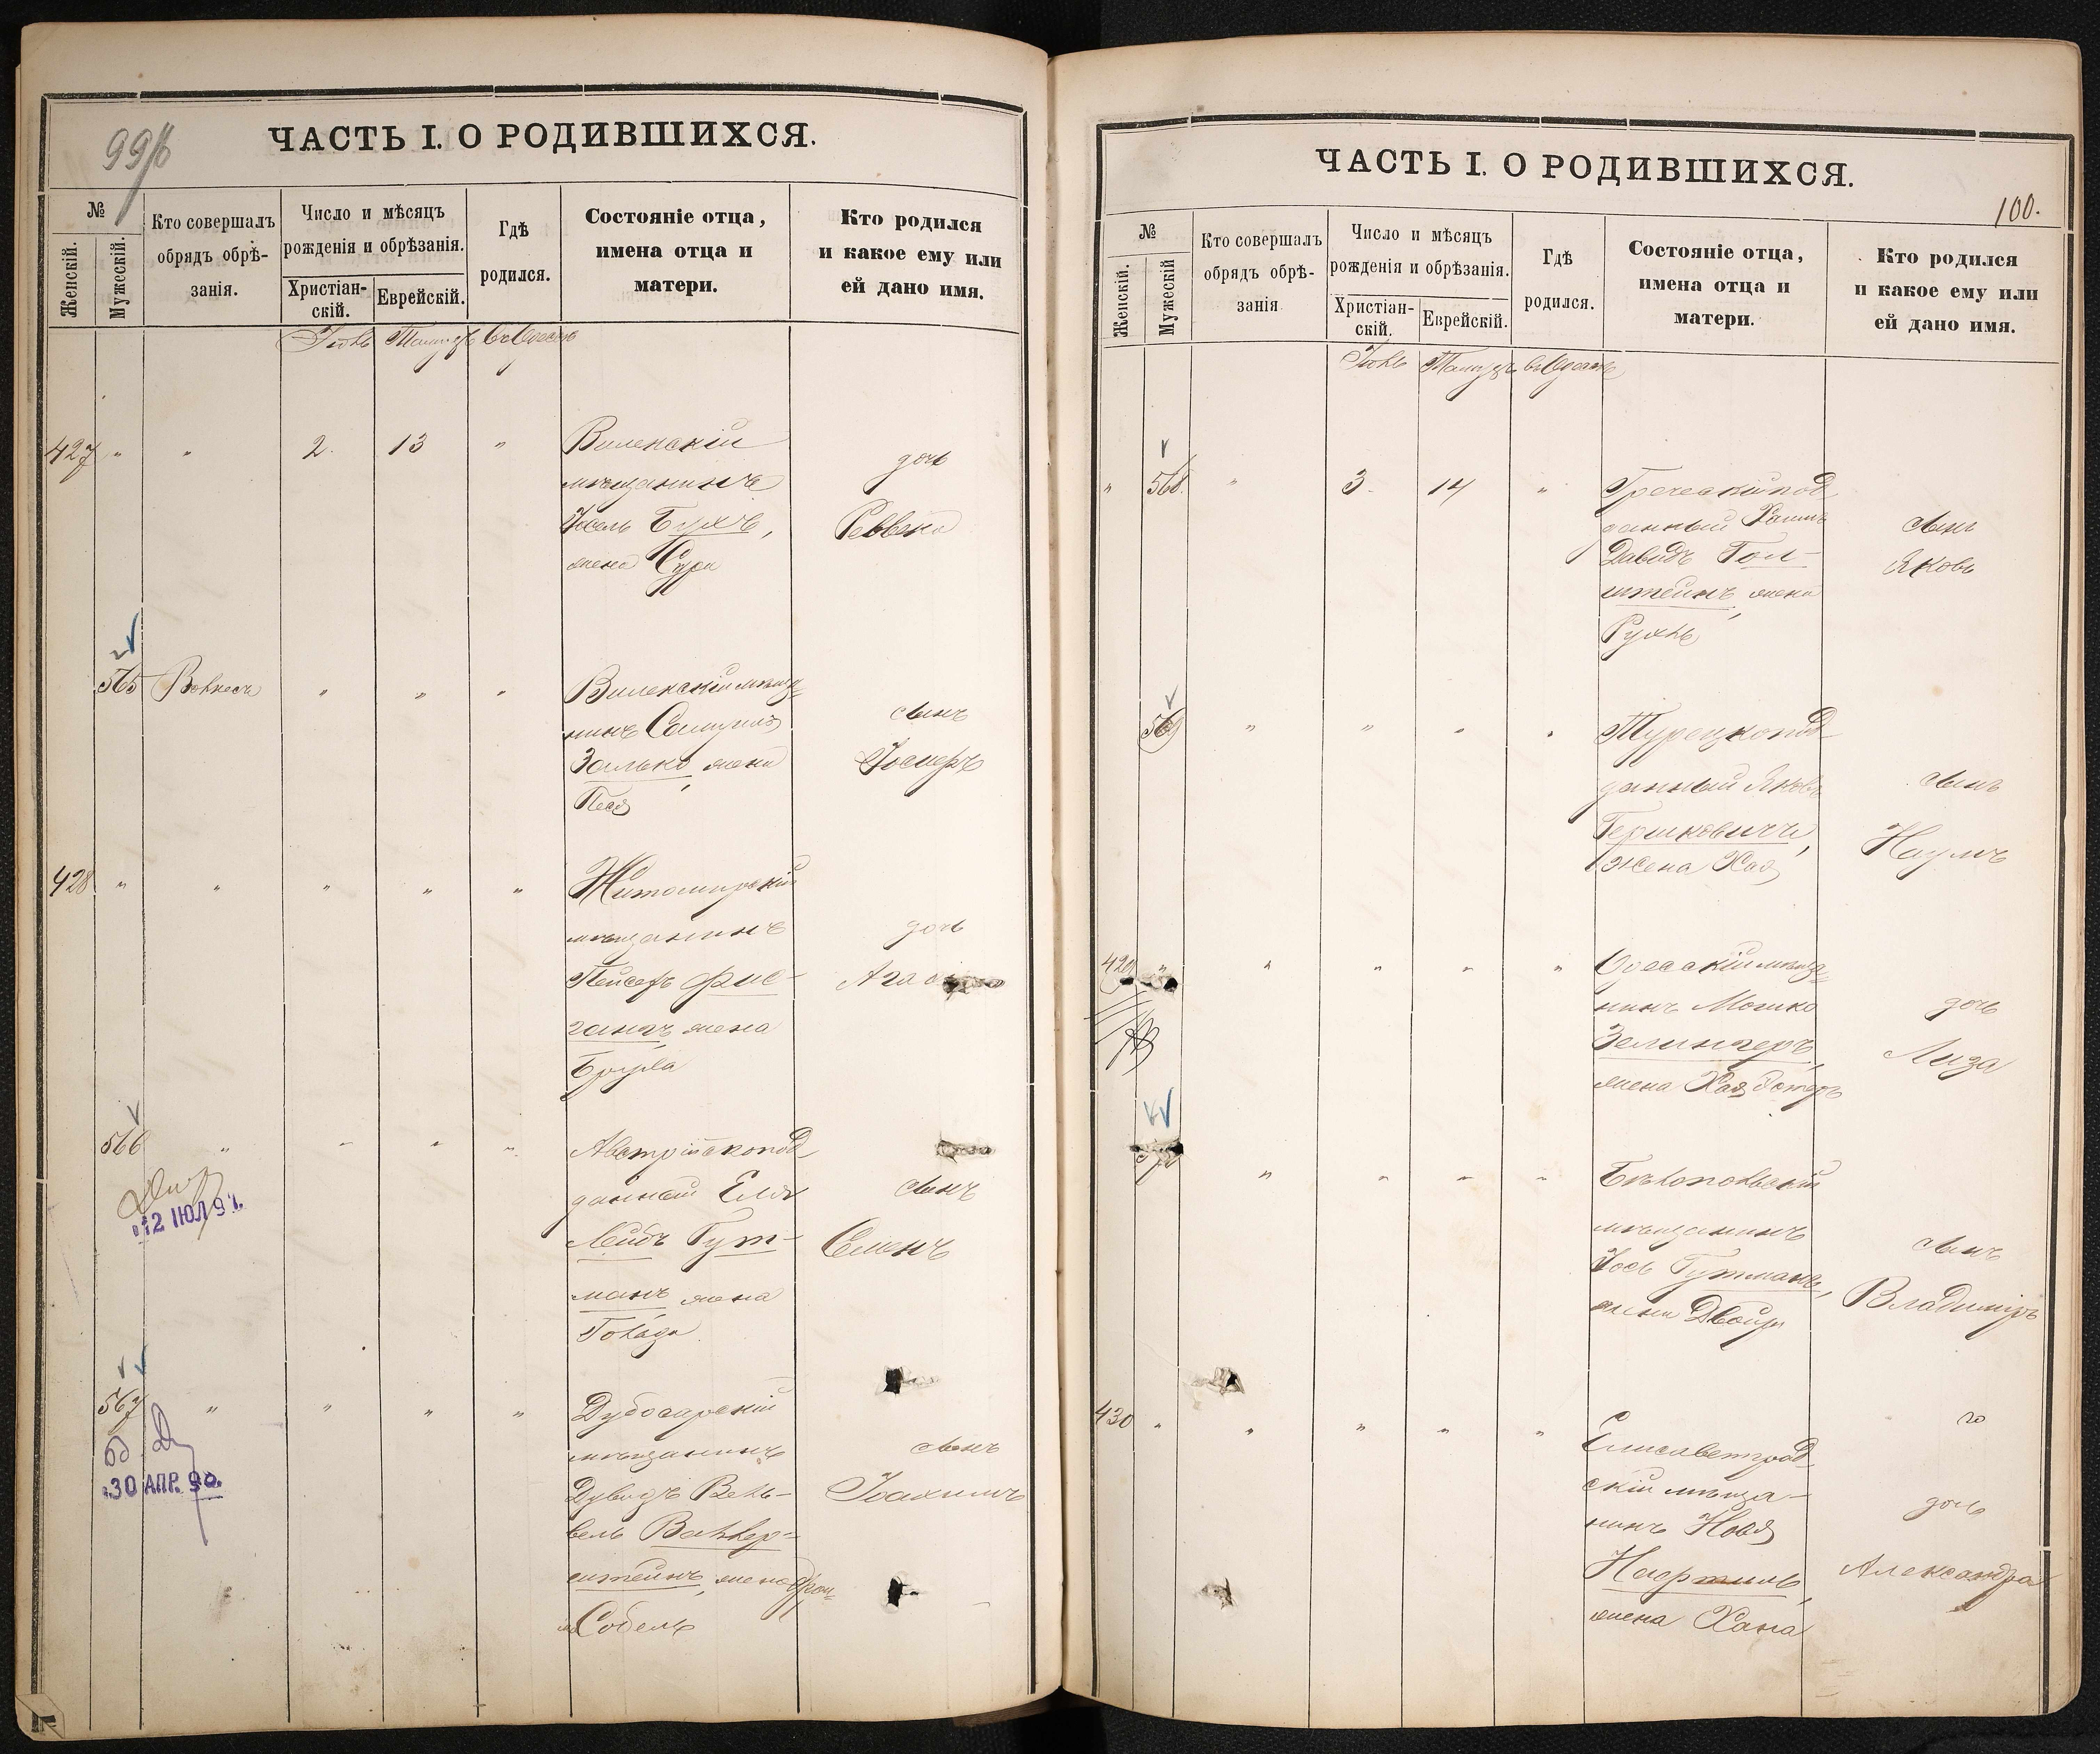 99/б
ЧАСТЬ I. О РОДИВШИХСЯ.
№
Женскій.
Мужескій.
Кто совершалъ
обрядъ обрѣ-
занія.
Число и мѣсяцъ
рожденія и обрѣзанія.
Христіан-
скій.
Еврейскій.
Гдѣ
родился.
Состояніе отца,
имена отца и
матери.
Кто родился
и какое ему или
ей дано имя.
Іюль Тамузъ въ Одессѣ
427 " " 2. 13 "
Виленскій
мѣщанинъ
Іосель Бухъ,
жена Сура
дочь
Реввека
565 " " "
Виленскій мѣща=
нинъ
Залько, жена
Песя
сынъ
Іосифъ
428 " " " " "
Житомирскій
мѣщанинъ
Фис-
ганъ, жена
Брухa
дочь
566 " " " "
Австрійскопод
данный Еля
Лейбъ Гут-
манъ, жена
Голда
сынъ
Семенъ
12 ІЮЛ 9
567 " " " "
Дубосарскій
мѣщанинъ
Дувидъ Вель-
вель Валлер-
штейнъ, жена Фрей-
Собель
сынъ
Іоахимъ
30 АПР. 9
ЧАСТЬ I. О РОДИВШИХСЯ.
100.
№
Женскій.
Мужескій
Кто совершалъ
обрядъ обрѣ-
занія
Число и мѣсяцъ
рожденія и обрѣзанія.
Христіан-
скій.
Еврейскій.
Гдѣ
родился.
Состояніе отца,
имена отца и
матери.
Кто родился
и какое ему или
ей дано имя.
Іюль Тамузъ въ Одессѣ
" 568. " 3. 14 "
Греческій под
данный Хаимъ
Давидъ Гол-
штейнъ, жена
Рухль
сынъ
Яковъ
569 " " " "
Турецкопод
данный Яковъ
Гершковичъ,
жена Хая
сынъ
Наумъ
429 " " " " "
Одесскій мѣща=
нинъ Мошко
Зелингеръ,
жена Хая Эстеръ
дочь
Лиза
" " " "
Бѣлопольскій
мѣщанинъ
Іось Гутманъ,
жена Двойра
сынъ
Владиміръ
430 " " " " "
Елисаветград
скій мѣща-
нинъ Новя
Нафтуль,
жена Хана
дочь
Александра